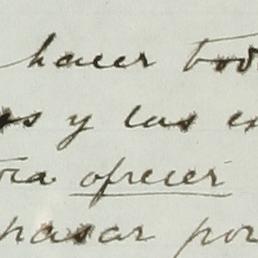 hacer tod
os y las ex
ora ofrecer
pasar por